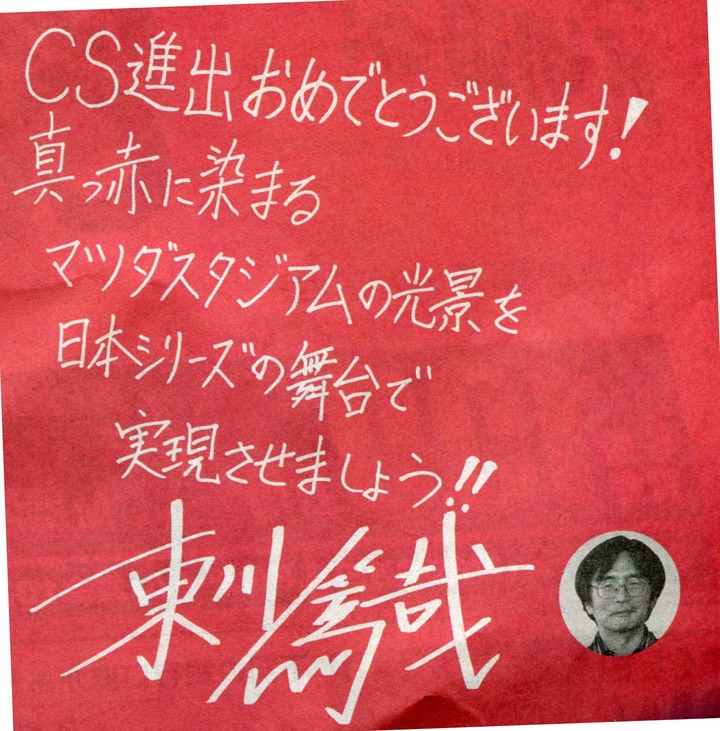 CS進出おめでとうございます!
真っ赤に染まる
マツダスタジアムの光景を
日本シリーズの舞台で
実現させましょう!!
東川篤哉